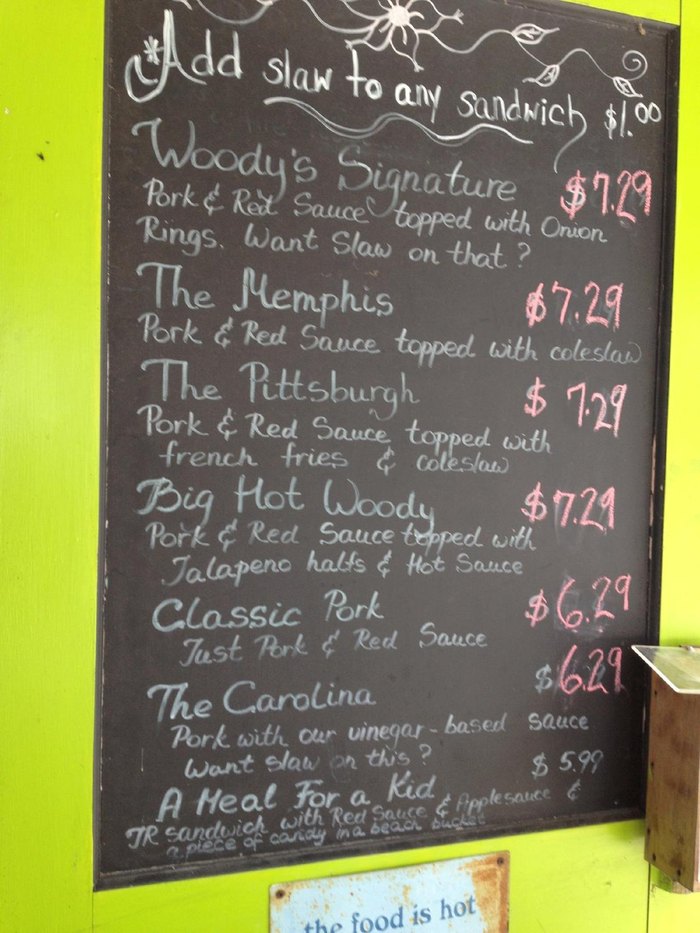 *Add slaw to any sandwich $1.00
Woody's Signature $7.29
Pork & Red Sauce topped with Onion
Rings. Want Slaw on that?
The Memphis $7.29
Pork & Red Sauce topped with coleslaw
The Pittsburgh $7.29
Pork & Red Sauce topped with
french fries & coleslaw
Big Hot Woody $7.29
Pork & Red Sauce topped with
Jalapeno halfs & Hot Sauce
Classic Pork $6.29
Just Pork & Red Sauce
The Carolina $6.29
Pork with our vinegar-based sauce
Want slaw on this?
A Meal For a Kid $5.99
JR sandwich with Red Sauce & Applesauce &
a piece of candy in a beach bucket
the food is hot